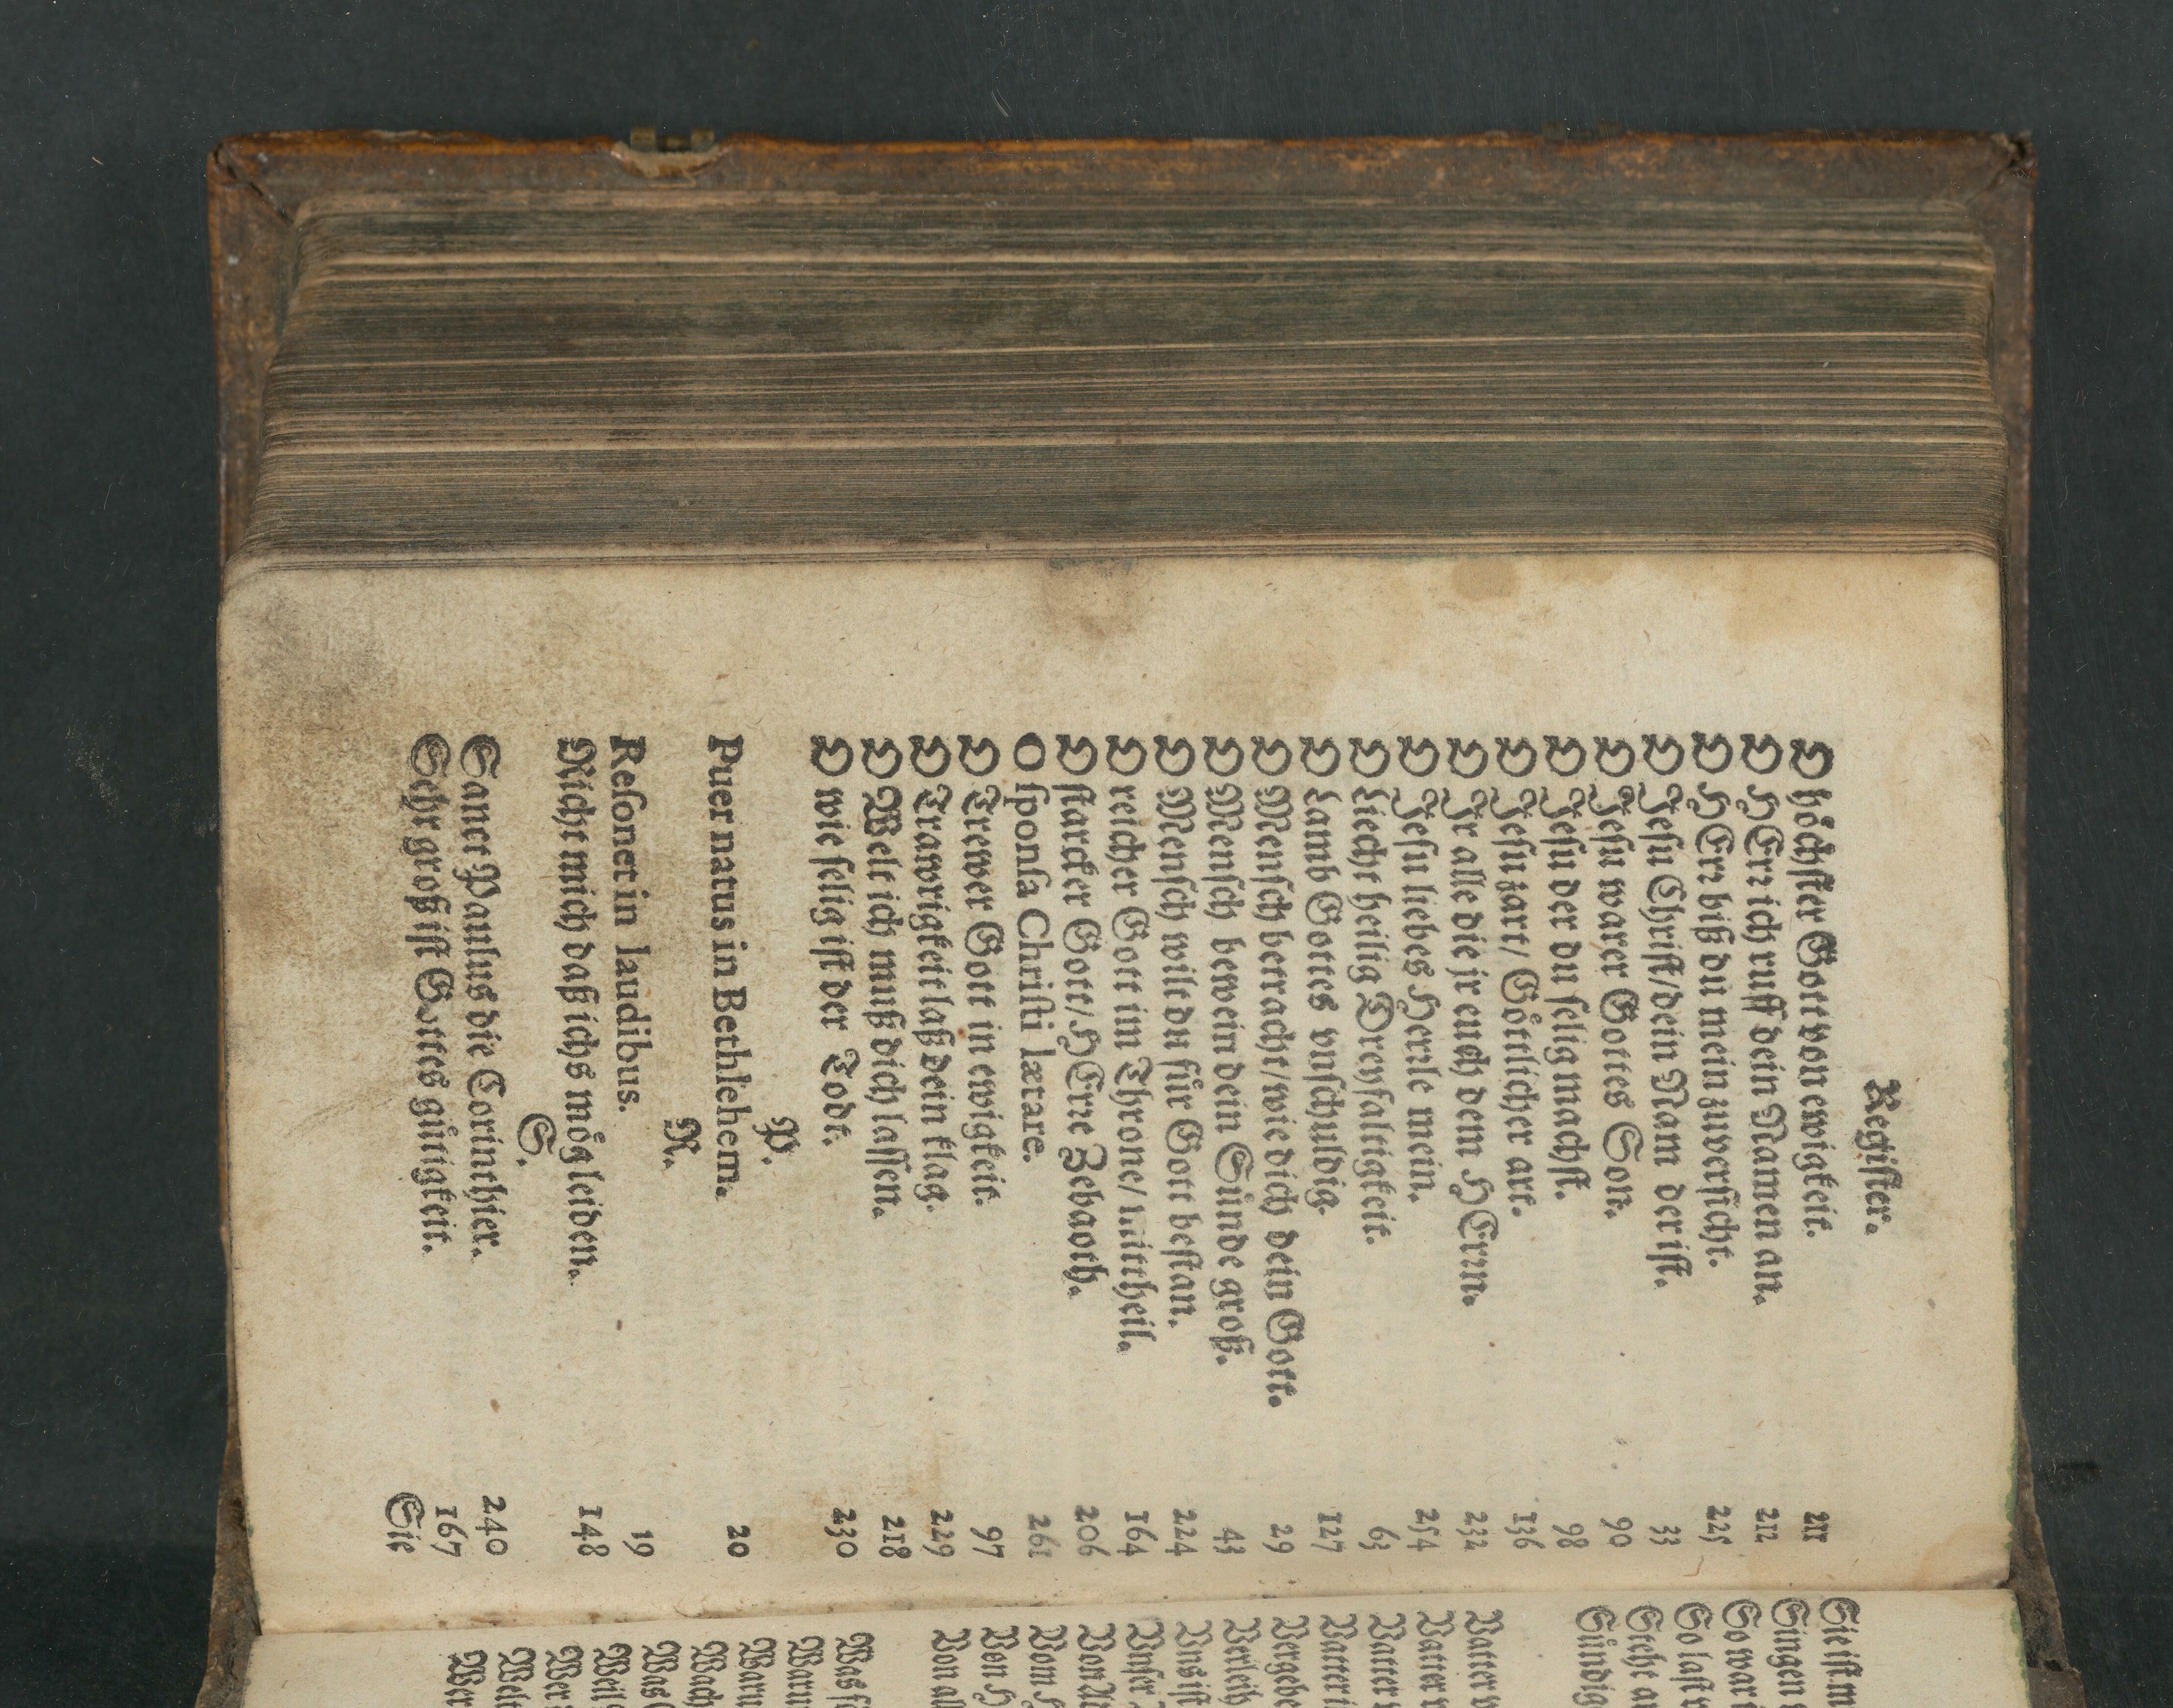 Register.
O höchster Gott von ewigkeit. 211
O HErr ich ruff dein Namen an. 212
O HErr biß du mein zuversicht. 225
O Jesu Christ/ dein Nam der ist. 33
O Jesu warer Gottes Son. 90
O Jesu der du selig machst. 98
O Jesu zart/ Göttlicher art. 136
O Jr alle die jr euch dem HErrn. 232
O Jesu liebes Herzle mein. 254
O Liecht heilig Dreyfaltigkeit. 63
O Lamb Gottes vnschuldig. 127
O Mensch betracht/ wie dich dein Gott. 29
O Mensch bewein dein Sünde groß. 43
O Mensch wilt du für Gott bestan. 224
O reicher Gott im Throne/ mittheil. 164
O starcker Gott/ HErre Zebaoth. 206
O sponsa Christi lætare. 261
O Trewer Gott in ewigkeit. 97
O Trawrigkeit laß dein klag. 229
O Welt ich muß dich lassen. 218
O wie selig ist der Todt. 230
P.
Puer natus in Bethlehem. 20
R.
Resonet in laudibus. 19
Richt mich daß ichs mög leiden. 148
S.
Sanct Paulus die Corinthier. 240
Sehr groß ist Gottes gütigkeit. 167
Sie
Sie ist m
Singen
So war
So last
Stehe
Sündig
Vatter
Vatter
Vatter
Vatter
Vergebe
Verleih
Vns ist
Vnser
Von
Vom
Von H
Von all
Was
Waru
Waru
Wach
Was
Weil
Wer
Welt
Wer